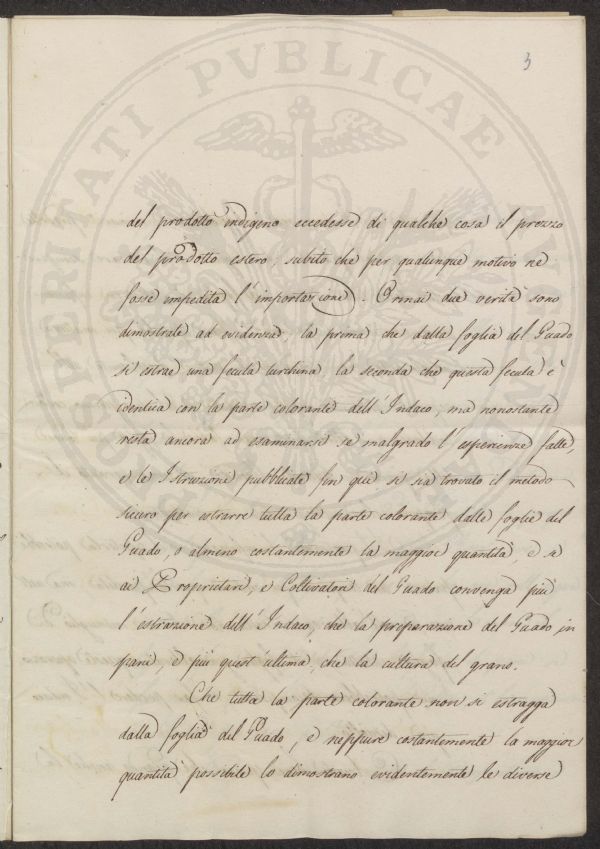 3
del prodotto indigeno eccedesse di qualche cosa il prezzo
del prodotto estero, subito che per qualunque motivo ne
fosse impedita l'importazione. Ormai due verità sono
dimostrate ad evidenza, la prima che dalla foglia del Guado
si estrae una fecula turchina, la seconda che questa fecula è
identica con la parte colorante dell'Indaco; ma nonostante
resta ancora ad esaminarsi se malgrado l'esperienze fatte,
e le Istruzioni pubblicate fin quì si sia trovato il metodo
sicuro per estrarre tutta la parte colorante dalle foglie del
Guado, o almeno costantemente la maggior quantità, e se
ai Proprietarj, e Coltivatori del Guado convenga più
l'estrazione dell'Indaco, che la preparazione del Guado in
pani, e più quest'ultima, che la cultura del grano.
Che tutta la parte colorante non si estragga
dalla foglia del Guado, e neppure costantemente la maggior
quantità possibile lo dimostrano evidentemente le diverse
PROSPERITATI PVBLICAE AVGENDAE